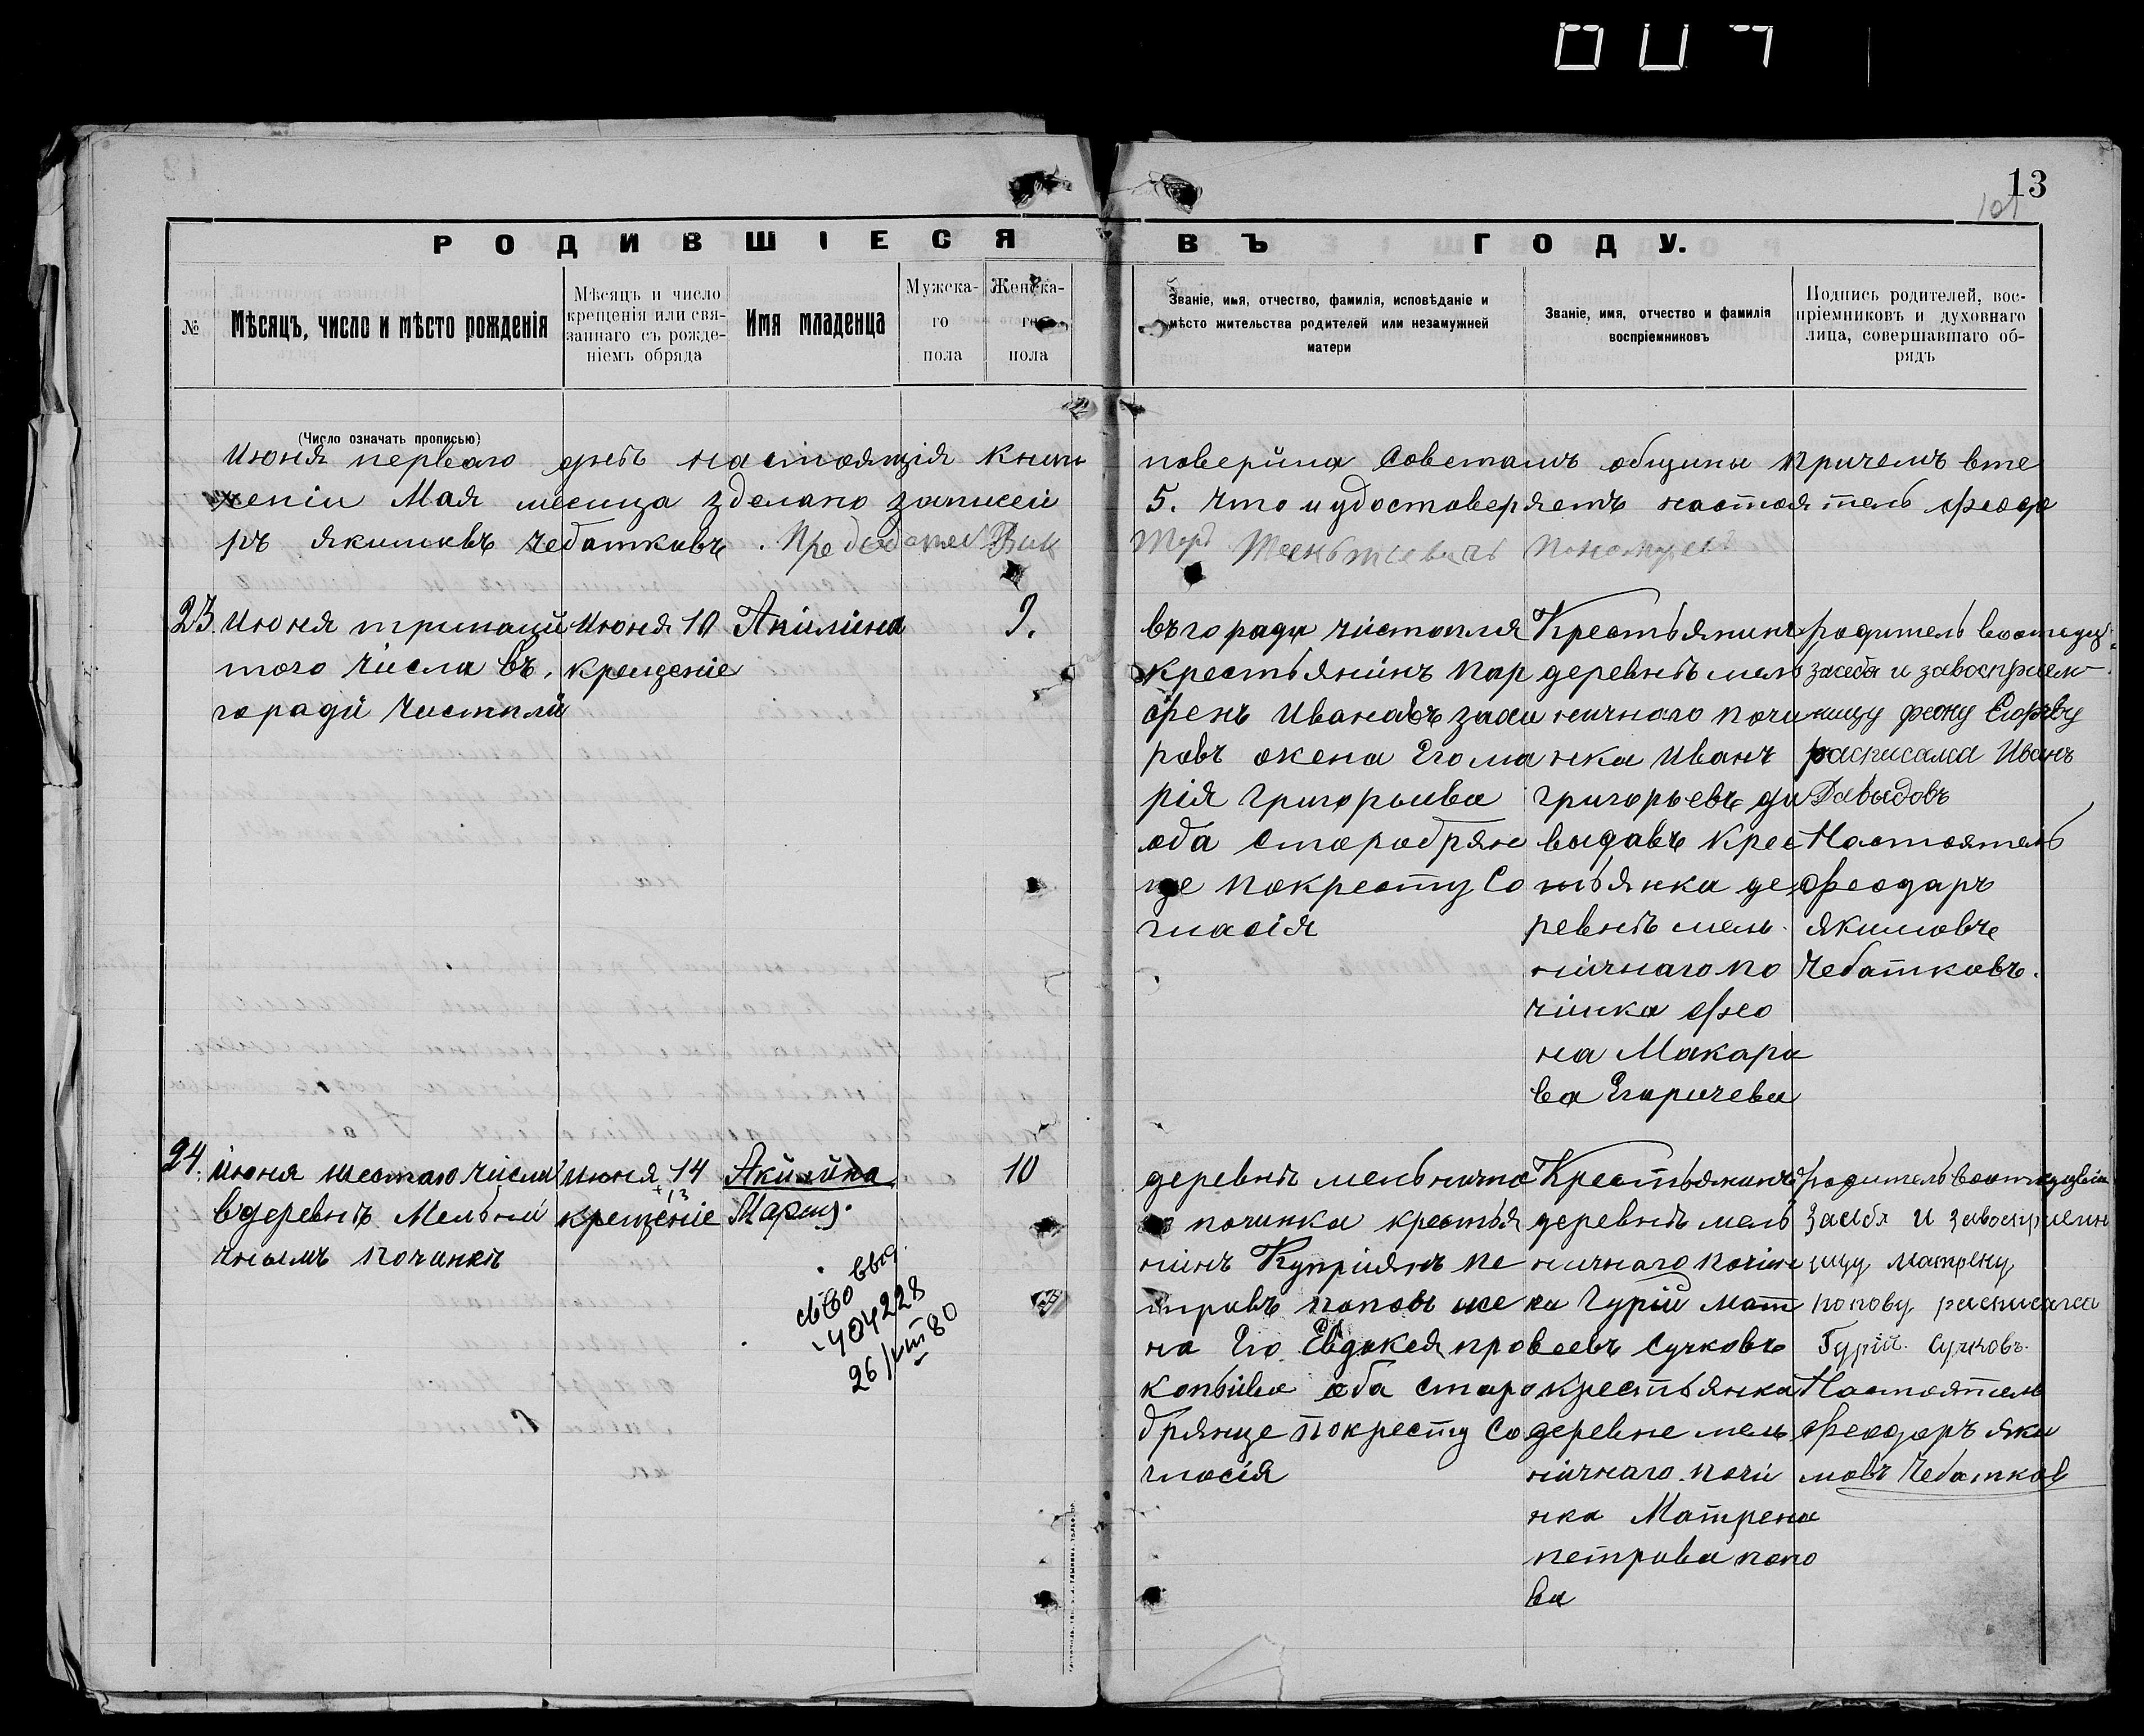 13
101
РОДИВШІЕСЯ ВЪ ГОДУ.
№
Мѣсяцъ, число и мѣсто рожденія
Мѣсяцъ и число
крещенія или свя-
заннаго съ рожде-
ніемъ обряда
Имя младенца
Мужска-
го
пола
Женска-
го
пола
Званіе, имя, отчество, фамилія, исповѣданіе и
мѣсто жительства родителей или незамужней
матери
Званіе, имя, отчество и фамилія
воспріемниковъ
Подпись родителей, вос-
пріемниковъ и духовнаго
лица, совершавшаго об-
рядъ
(Число означать прописью)
Июня первого дня настоящія книги поверина Советамъ общины причемъ вте
чении Мая месица зделано записей 5. что и удостоверяетъ настоятель феодо
ръ якимовъ чебатковъ. Председател Вик
23. Июня тринаци
того числа въ,
городи Чистпли
Июня 10
крещение
Акилина
9.
въгороди чистополя
крестьянинъ пар
фенъ Ивановъ заха
ровъ жена Его ма
рія григорьива
оба старобрян
це покресту Со
гласія
Крестьянинъ
деревнѣ мель
ничного почи
нка Иванъ
григорьевъ да
выдовъ Крес
тьянка де
ревнѣ мель
ничнаго по
чинка фео
на Макаро
ва Егоричева
родитель
засебя и завосприем
ницу феону Егорчву
расписалса Иванъ
Давыдовъ
Настоятель
феодаръ
якимовъ
Чебатковъ.
24. июня шестаго числа
вдеревнѣ Мельни
чнымъ починкѣ
июня 14
+13
крещение
Акилина
Мария.
св-во выд.
404228
26/VIII 80
10
деревнѣ мельнично
го починка крестья
нинъ Куприянъ пе
тровъ поповъ же
на Его Евдокея про
копьива оба старо
брянце покресту Со
гласія
Крестьянинъ
деревнѣ мель
ничнаго почин
ка Гурий мат
веевъ Сучковъ
крестьянка
деревне мель
ничнаго почи
нка Матрена
петрова попо
ва
родитель
засебя и завосприемн
ицу матрену
попову расписалса
Гурий. Сучковъ.
Настоятель
феодоръ яки
мовъ Чебатков